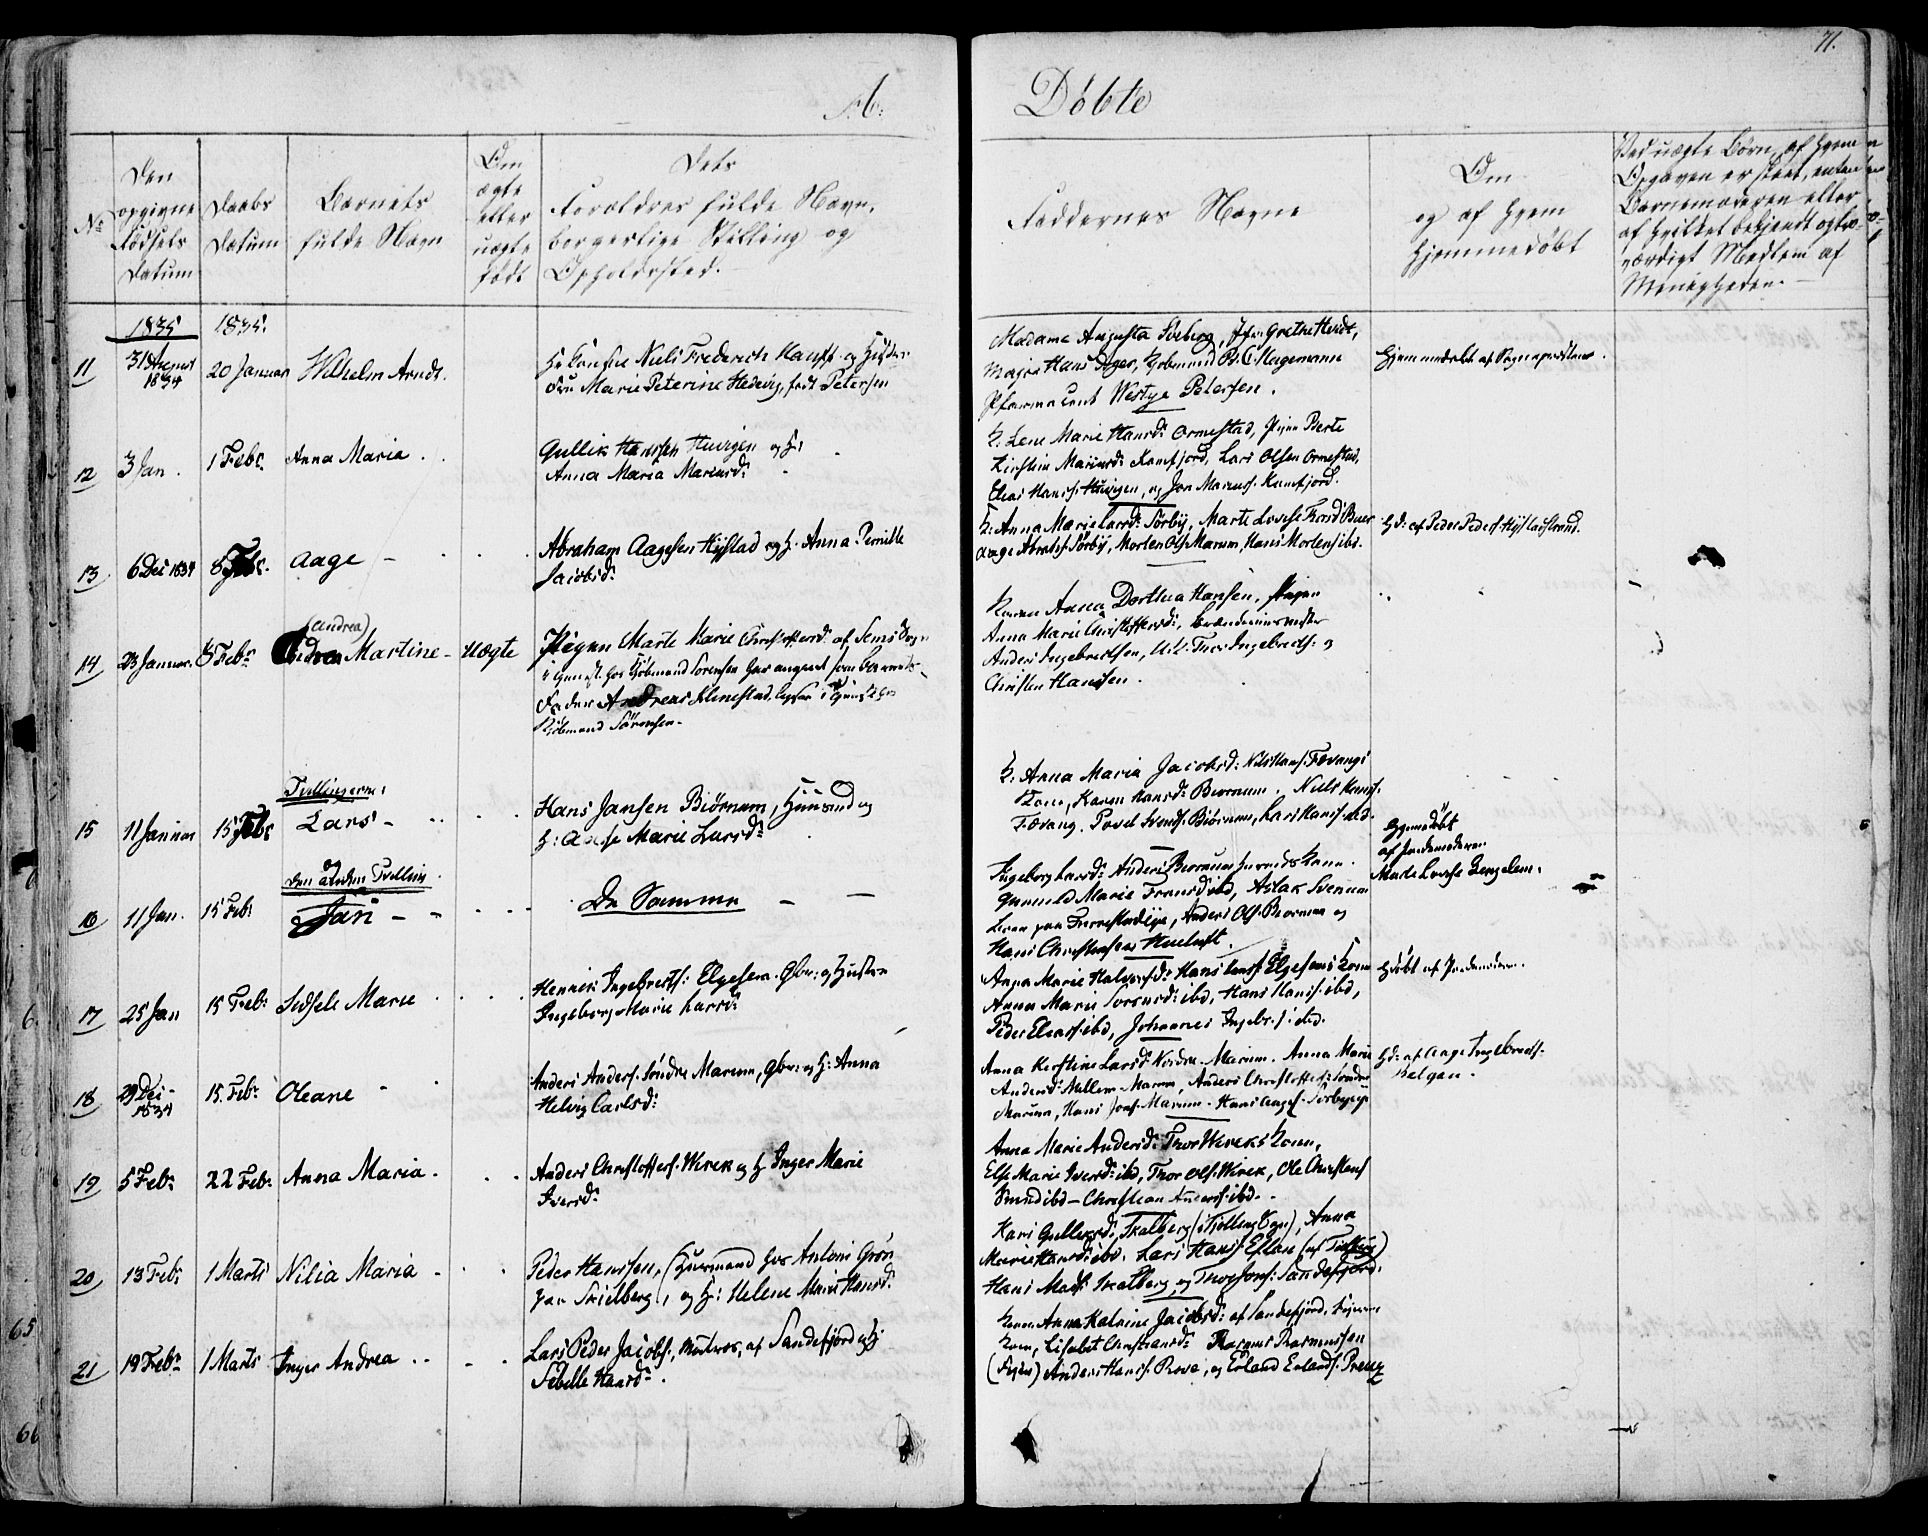 71.
A: Døbte
No
Den opgivne Fødsels Datum
Daabs Datum
Barnets fulde Navn
Om ægte eller uægte født
Dets Forældres fulde Navn, borgerlige Stilling og Opholdssted.
Faddernes Navne
Om og af hvem hjemmedøbt
Ved uægte Børn, af hvem Opgaven er skeet, enten Barnemoderen eller af hvilket bekjendt og troværdigt Medlem af Menigheden.
1835 1835.
11 31 August 1834 20 Januar Wilhelm Arndt.
Hr Consul Niels Frederich Hauff og Hustru
Fru Marie Peterine Hedevig, født Petersen
Madame Augusta Sveberg, Jfr: Grethe Hvidt,
Major Hans Ager, Kjøbmand P. C. Hagemann
Pharmaceut Westye Petersen.
Hjemmedøbt af Sognepresten.
12 3 Jan. 1 Febr. Anna Maria
Gullik Hanssen Huvigen og H:
Anna Maria Mariusd:
K: Lene Marie Hansd: Ormestad, Pigen Berte
Kirstine Mariusd: Kamfjord, Lars Olsen Ormestad,
Elias Hanss. Huvigen, og Jon Marius. Kamfjord.
13 6 Dec 1834 8 Febr. Aage
Abraham Aagesen Hystad og H. Anna Pernille
Jacobsd:
K: Anna Marie Larsd: Sørby, Marte Lovise Thorsd Buer
Aage Abrahs. Sørby, Morten Ols. Marum, Hans Mortens ibd.
Hd: af Peder Peders. Hystadstrand.
14 23 Januar. 8 Febr. (Andrea) Martine Uægte
Pigen Marte Marie Christoffersd: af Sems Sogn
i tjenest. hos Kjøbmand Sørensen har angivet som Barnets
Fader Andreas Klinestad, ligesaa i tjeneste hos
Kjøbmand Sørensen.
Konen Anna Dorthea Hansen, Pigen
Anna Marie Christoffersd:, Brændeviinsmester
Anders Ingebretsen, Thor Ingebrets: og
Christen Hansen.
15 11 Januar 15 Febr Tvillingerne: Lars
Hans Jansen Biørnum, Huusmd og
H: Aase Marie Larsd:
K: Anna Maria Jacobsd: Nils Hans. Fævangs
Kone, Karen Hansd: Biørnum. Niels Hans.
Fævang. Povel Svends. Biørnum, Lars Hans. ibd.
Hjemedøbt
af Jordemoderen
Marte Lovise Bengelem.
16 11 Jan. 15 Febr og den anden Tvilling Jan
De Samme
Ingeborg Larsd: Anders Biørnum Huusmds Kone.
Gunnild Marie Fransd ibd, Aslak Svensen
paa Furrestadeie, Anders Ols. Biørnum og
Hans Christensen Hueluft.
17 25 Jan 15 Febr Sidsele Marie
Henrik Ingebrets: Elgesem. Gbr: og Hustru
Ingeborg Marie Larsd:
Anna Marie Halvorsd: Hans Hans. Elgesems Kone
Anna Marie Sørensd: ibd, Hans Hans. ibd,
Peder Elias. ibd, Johannes Ingebr. s: ibd.
Hdøbt af Jordemoderen.
18 29 Dec. 1834 15. Febr. Oleane
Anders Anders. Søndre Marum, Gbr: og H: Anna
Helvig Carlsd:
Anna Kirstine Larsd: Nordre Marum. Anna Marie
Andersd: Mellem-Marum, Anders Christoffers: Søndre
Marum, Hans Jons. Marum. Hans Aages. Sørbyeje
Hd: af Aage Ingebreds:
Helgan.
19 5 Febr 22 Febr. Anna Maria
Anders Christoffers. Wirek og H. Inger Marie
Iversd:
Anna Marie Andersd: Thor Wireks Kone,
Else Marie Iversd: ibd, Thor Ols. Wirek, Ole Christens
ibd - Christian Anders. ibd.
20 13 Febr 1 Marts Nilia Maria
Peder Hanssen, (Huusmand hos Antoni Grøn
paa Skielberg, og H: Helene Marie Hansd:
Kari Gulliksd: Skalberg (i Tjølling Sogn), Anna
Marie Hansd: ibd. Lars Hans. Eftan (af Tjølling)
Hans Mads. Skalberg, og Thor Jons: Sandefjord.
21 19 Febr 1 Marts Inger Andrea
Lars Peder Jacobs:, Matros, af Sandefjord og H:
Sibelle Hansd:
Konen Anna Katrine Jacobsd: af Sandefjord,
Kone, Lisabet Christiansd: Rasmus Rasmussen
(Fejen) Anders Hans. Rove, og Erland Erlands. Preuz